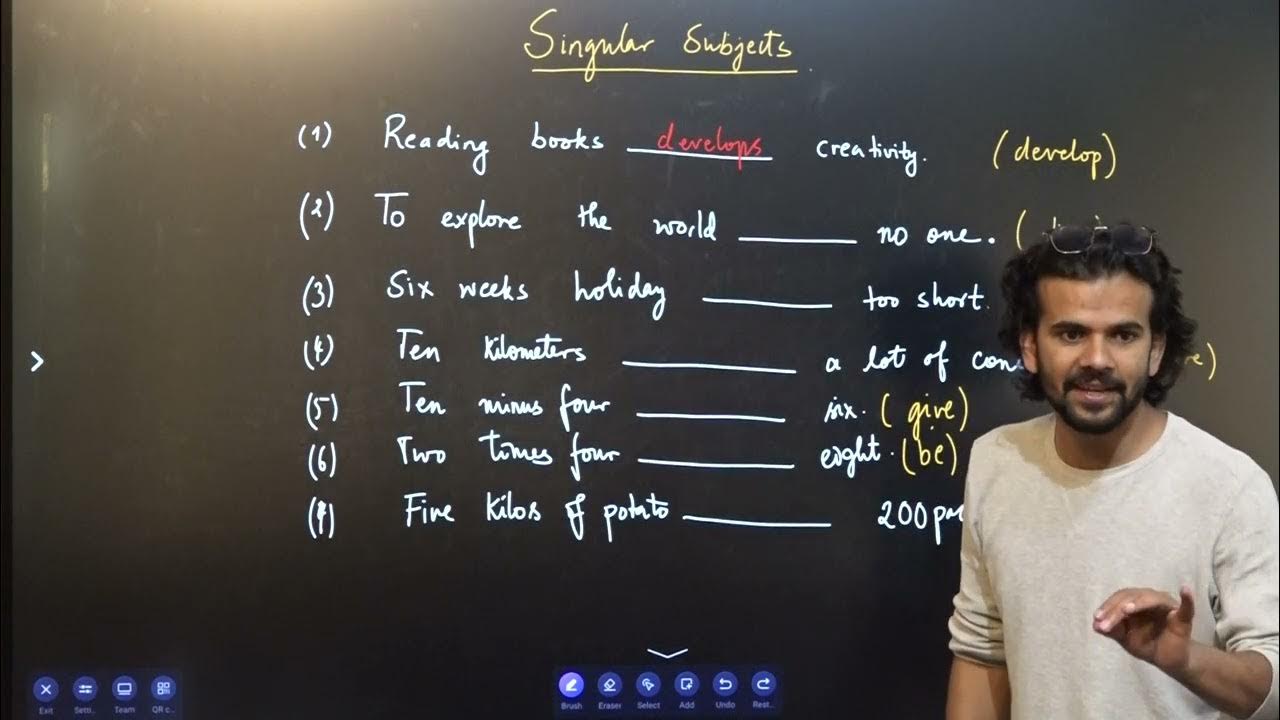 Singular Subjects
(1) Reading books develops creativity. (develop)
(2) To explore the world ______ no one. (
(3) Six weeks holiday ______ too short.
(4) Ten kilometers ______ a lot of
(5) Ten minus four ______ six. (give)
(6) Two times four ______ eoght. (be)
(7) Five kilos of potato ______ 200
Exit Setti.. Team QR c... Brush Eraser Select Add Undo Rest..